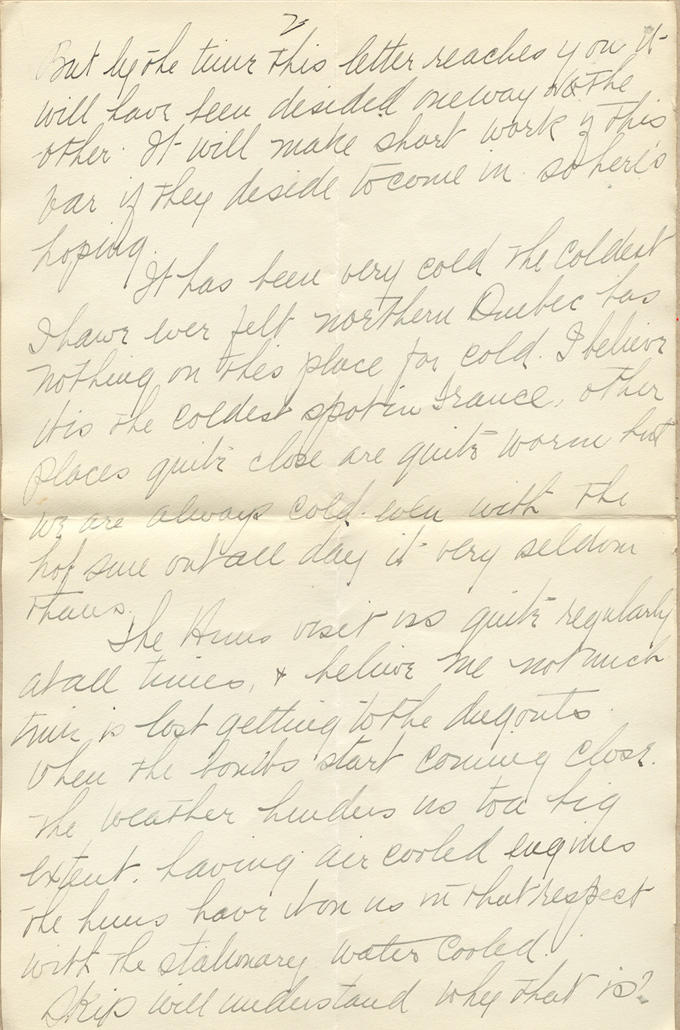 2
But by the time this letter reaches you it
will have been desided oneway or the
other. It will make short work of this
war if they deside to come in. so here's
hoping.
It has been very cold the coldest
I have ever felt northern Quebec has
nothing on this place for cold. I believe
it is the coldest spot in France, other
places quite close are quite worm but
we are always cold. even with the
hot sun out all day it very seldom
thaws.
The Huns visit us quite regularly
at all times, & belive me not much
time is lost getting to the dugouts.
When the bombs start coming close.
The weather hinders us to a big
extent. having air cooled engines
the huns have it on us in that respect
with the stationary water cooled.
Skip will understand why that is?